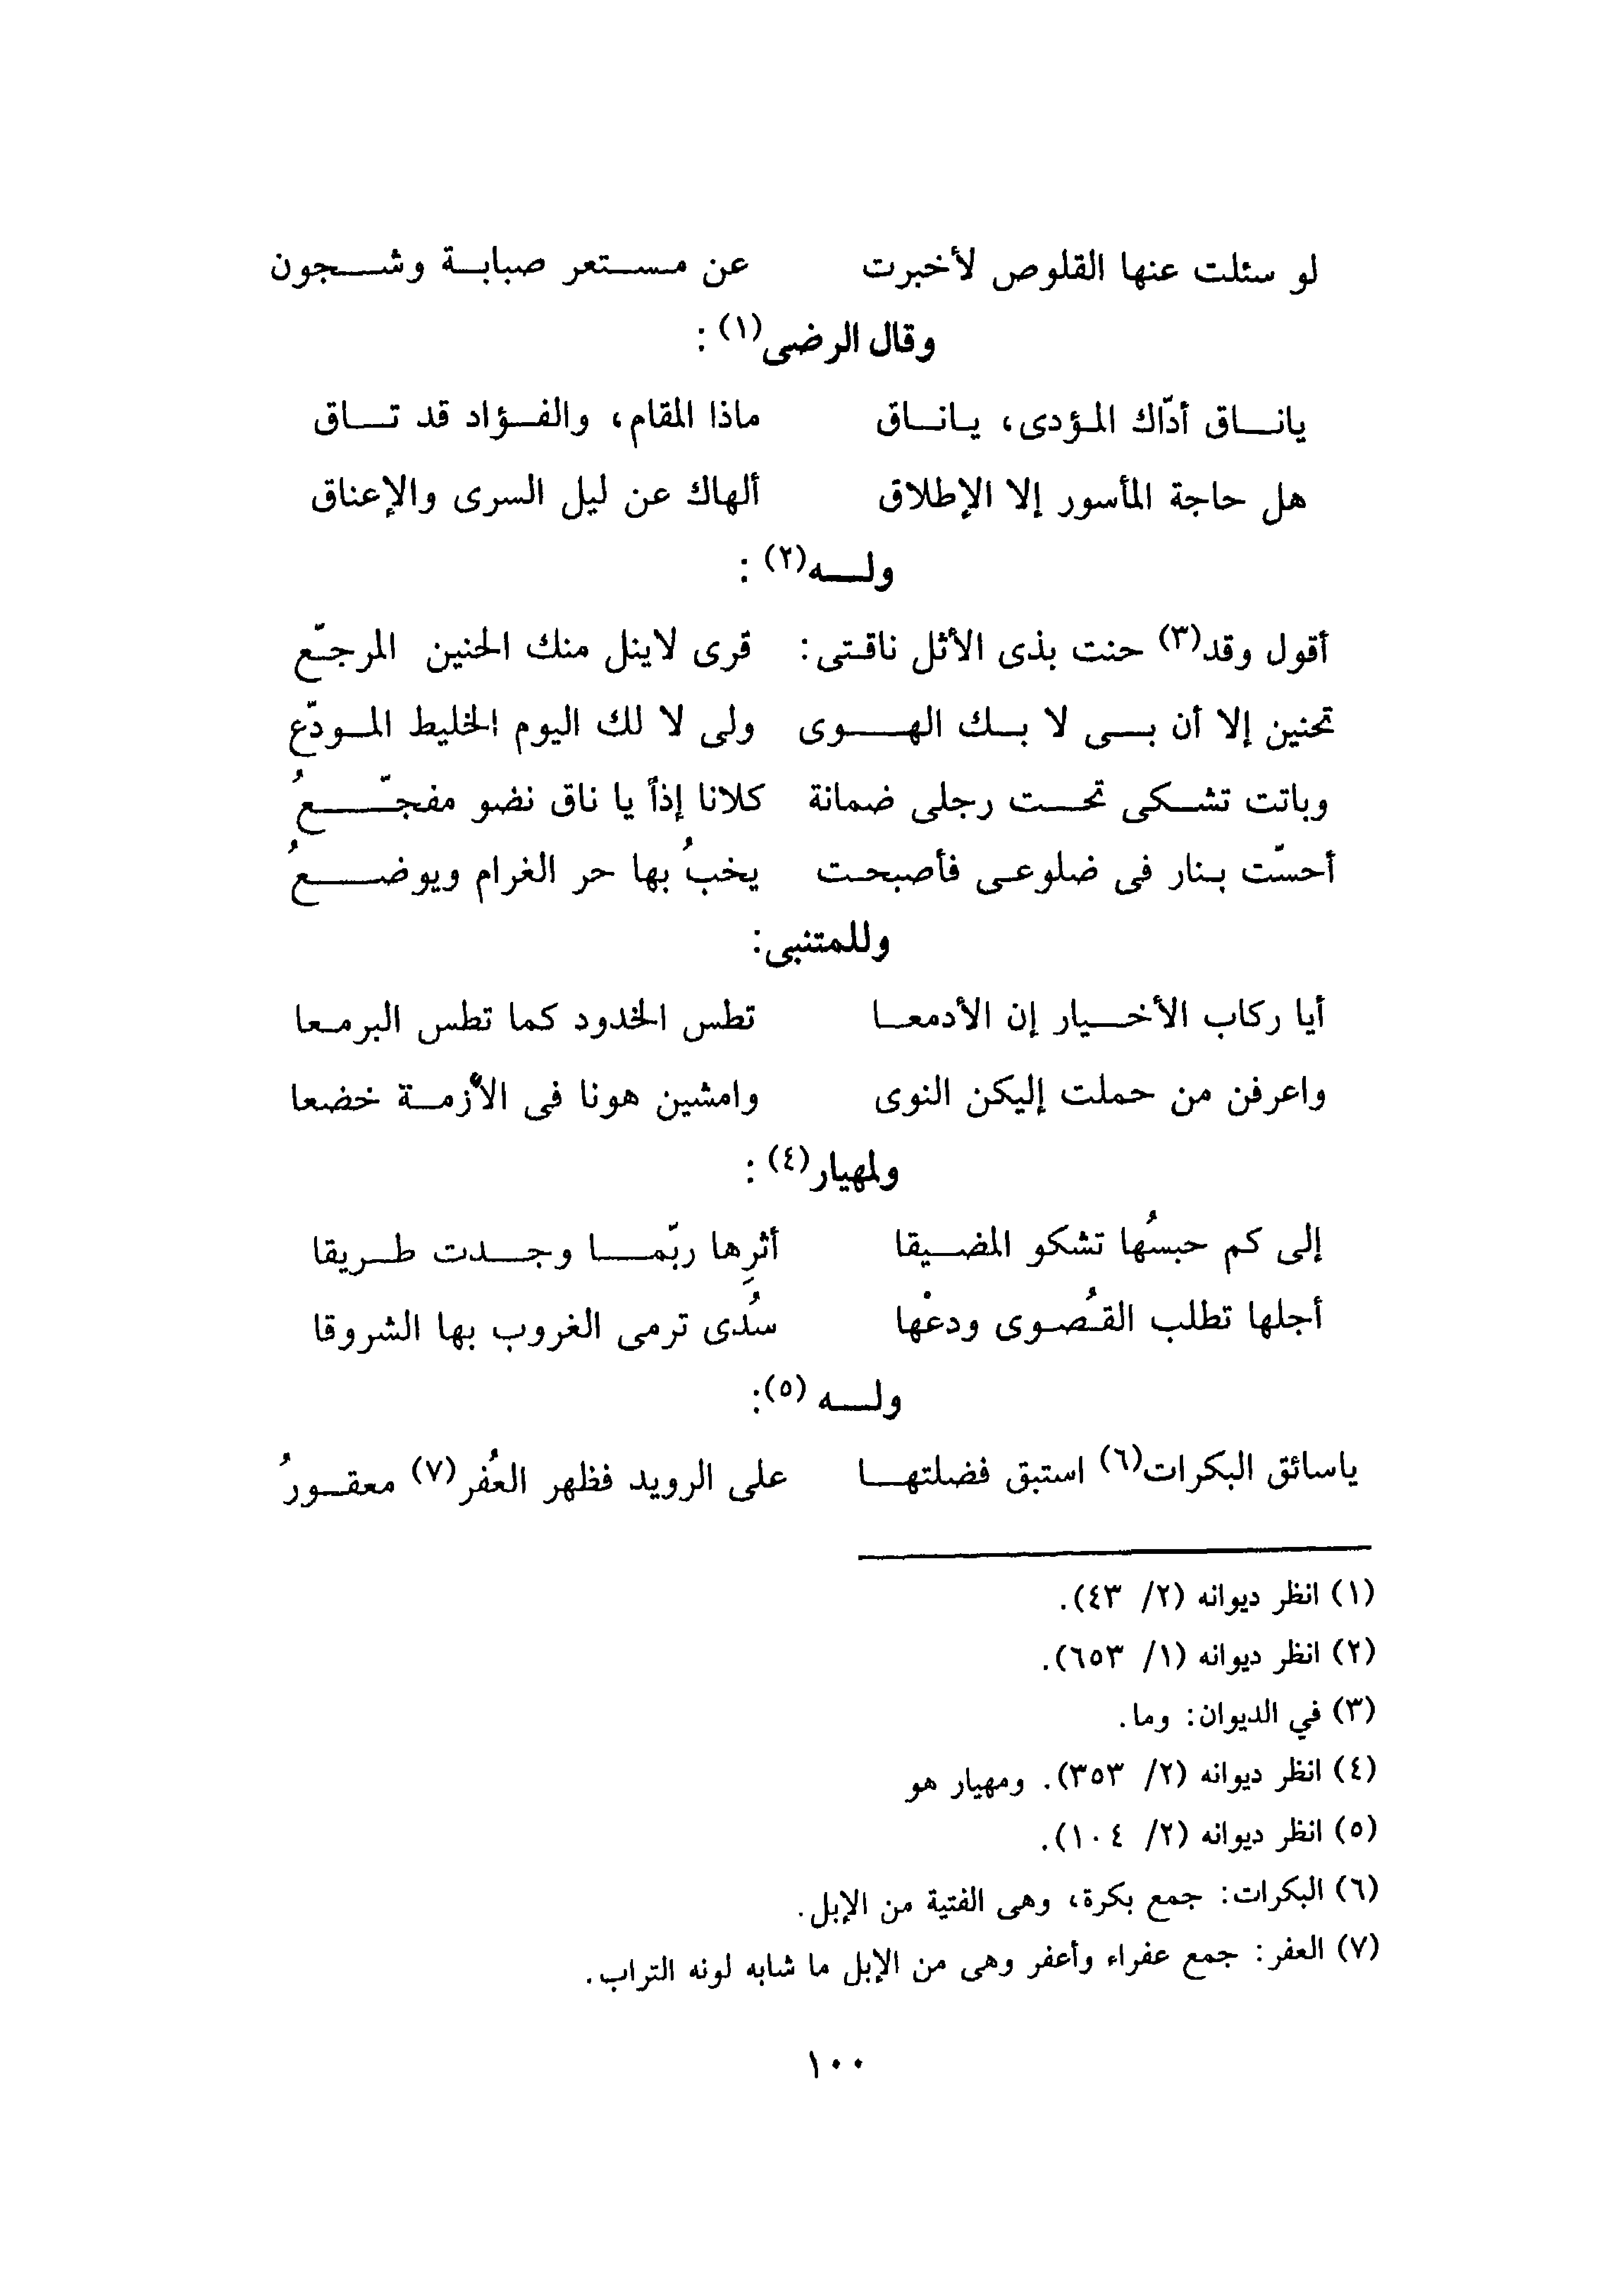 لو سئلت عنها القلوص لأخبرت عن مستعر صبابة وشجون
وقال الرضى(١) :
ياناق أدّاك المؤدى، ياناق ماذا المقام، والفؤاد قد تاق
هل حاجة المأسور إلا الإطلاق ألهاك عن ليل السرى والإعناق
وله(٢) :
أقول وقد(٣) حنت بذى الأثل ناقتى: قرى لاينل منك الحنين المرجّع
تحنين إلا أن بى لا بك الهوى ولى لا لك اليوم الخليط المودّع
وباتت تشكى تحت رجلى ضمانة كلانا إذاً يا ناق نضو مفجّعُ
أحسّت بنار فى ضلوعى فأصبحت يخبُ بها حر الغرام ويوضعُ
وللمتنبى:
أيا ركاب الأخيار إن الأدمعا تطس الخدود كما تطس البرمعا
واعرفن من حملت إليكن النوى وامشين هونا فى الأزمة خضعا
ولمهيار(٤) :
إلى كم حبسُها تشكو المضيقا أثرِها ربّما وجدت طريقا
أجلها تطلب القُصوى ودعْها سُدى ترمى الغروب بها الشروقا
وله (٥):
ياسائق البكرات(٦) استبق فضلتها على الرويد فظهر العُفر(٧) معقورُ
(١) انظر ديوانه (٢/ ٤٣).
(٢) انظر ديوانه (١/ ٦٥٣).
(٣) في الديوان: وما.
(٤) انظر ديوانه (٢/ ٣٥٣). ومهيار هو
(٥) انظر ديوانه (٢/ ١٠٤).
(٦) البكرات: جمع بكرة، وهى الفتية من الإبل.
(٧) العفر: جمع عفراء وأعفر وهى من الإبل ما شابه لونه التراب.
١٠٠